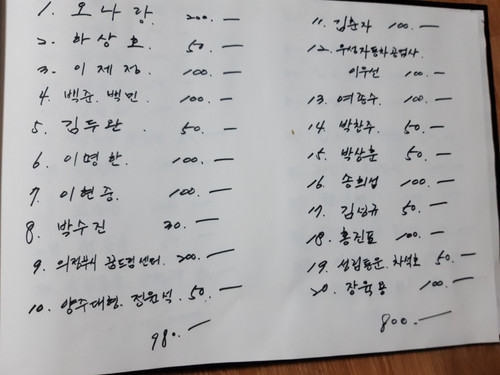 1. 오나랑. 200. —
2. 하상호. 50. —
3. 이제정. 100. —
4. 백준. 백민. 100. —
5. 김두완. 50. —
6. 이명한. 100. —
7. 이현중. 100. —
8. 박수진 30. —
9. 의정부시 꿈드림센터. 200. —
10. 양주대형. 정원식. 50. —
980. —
11. 김춘자 100. —
12. 우선자동차공업사
이우선 100. —
13. 여종수. 100. —
14. 박찬주. 50. —
15. 박상훈 50. —
16. 송희섭 100. —
17. 김성규 50. —
18. 홍진표 100. —
19. 성림통운. 차석호 50. —
20. 장육용 100. —
800. —